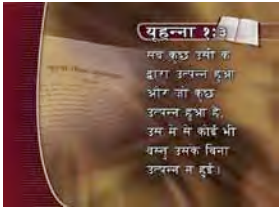 यूहन्ना १:३
सब कुछ उसी के
द्वारा उत्पन्न हुआ
और जो कुछ
उत्पन्न हुआ है,
उस में से कोई भी
वस्तु उसके बिना
उत्पन्न न हुई।